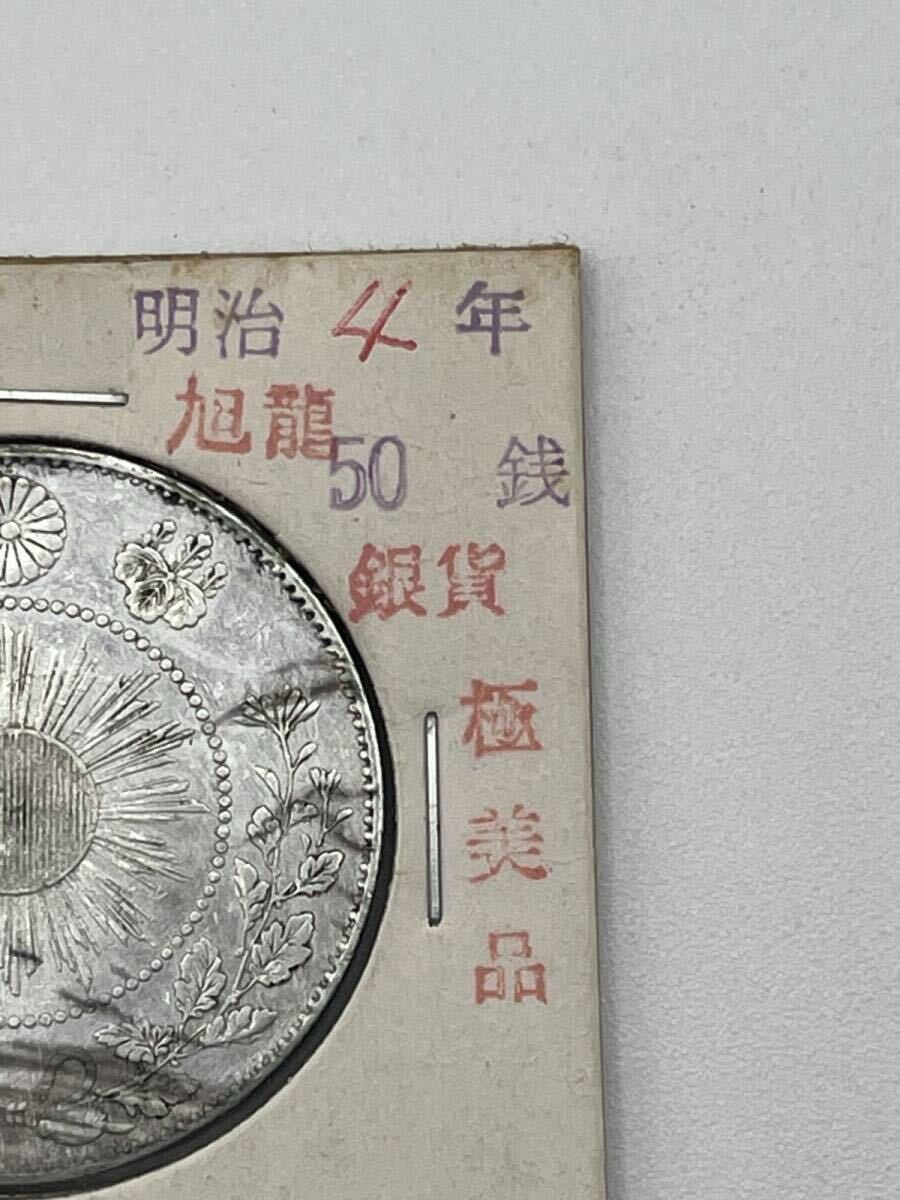 明治 4 年
旭龍
50 銭
銀貨
極美品